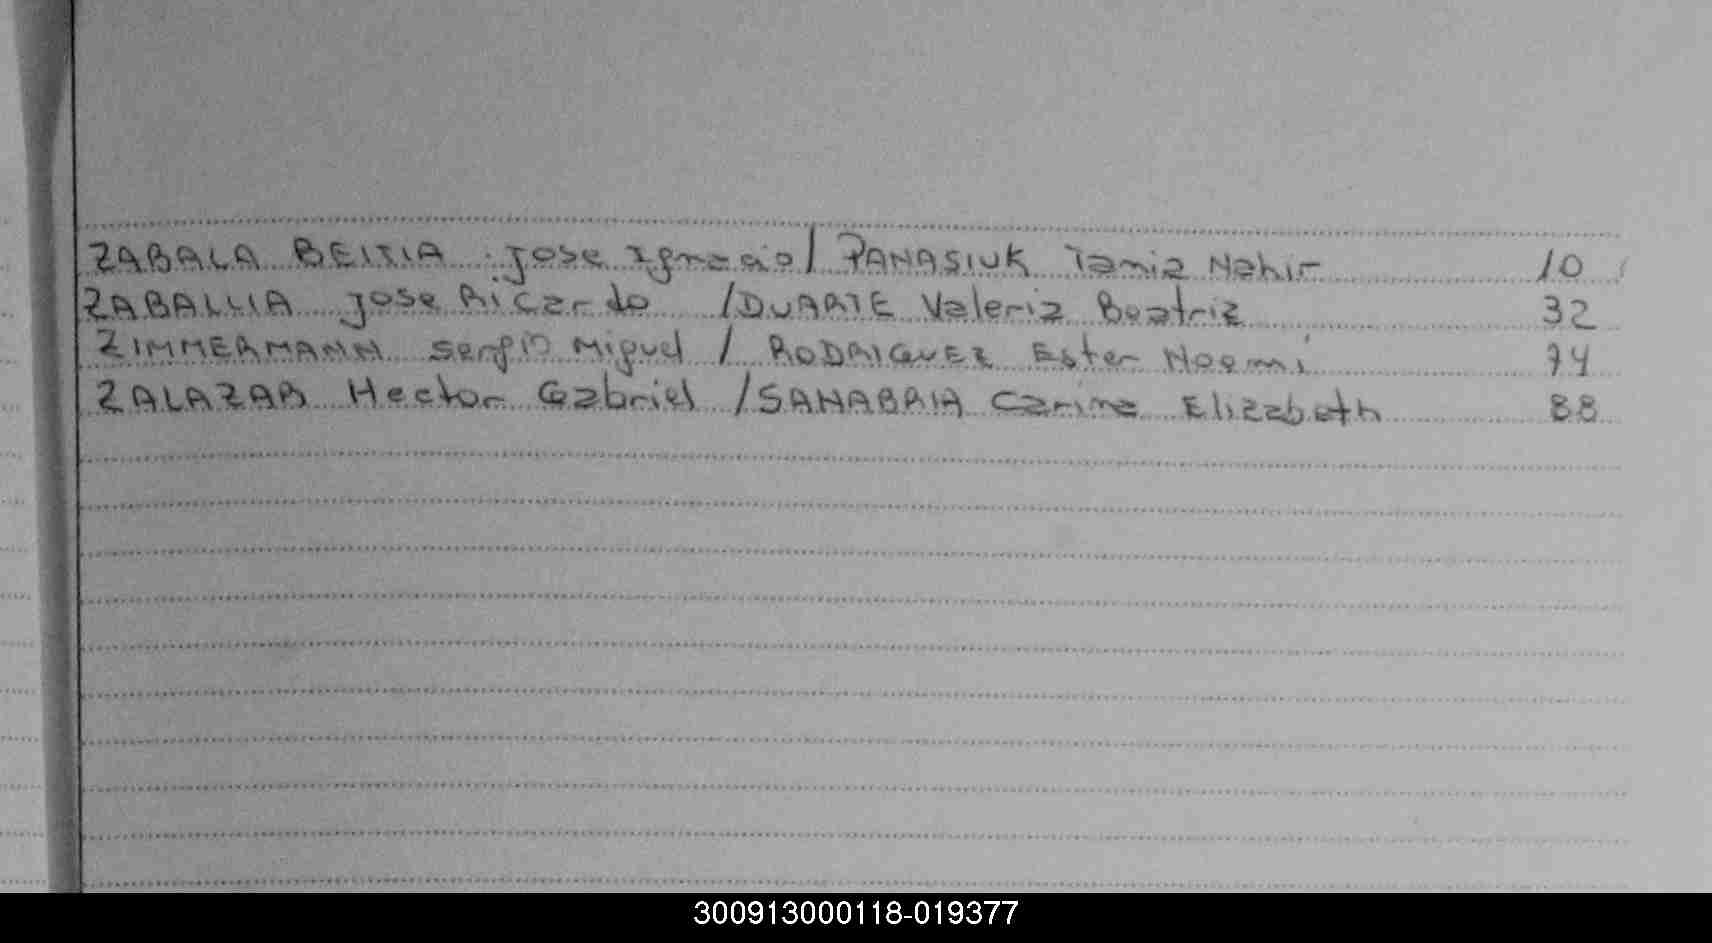 ZABALA BEITIA Jose Ignacio / PANASIUK Tamia Nahir 10
ZABALLIA Jose Ricardo / DUARTE Valeria Beatriz 32
ZIMMERMANN Sergio Miguel / RODRIGUEZ Ester Noemi 74
ZALAZAR Hector Gabriel / SANABRIA Carina Elizabeth 88
300913000118-019377